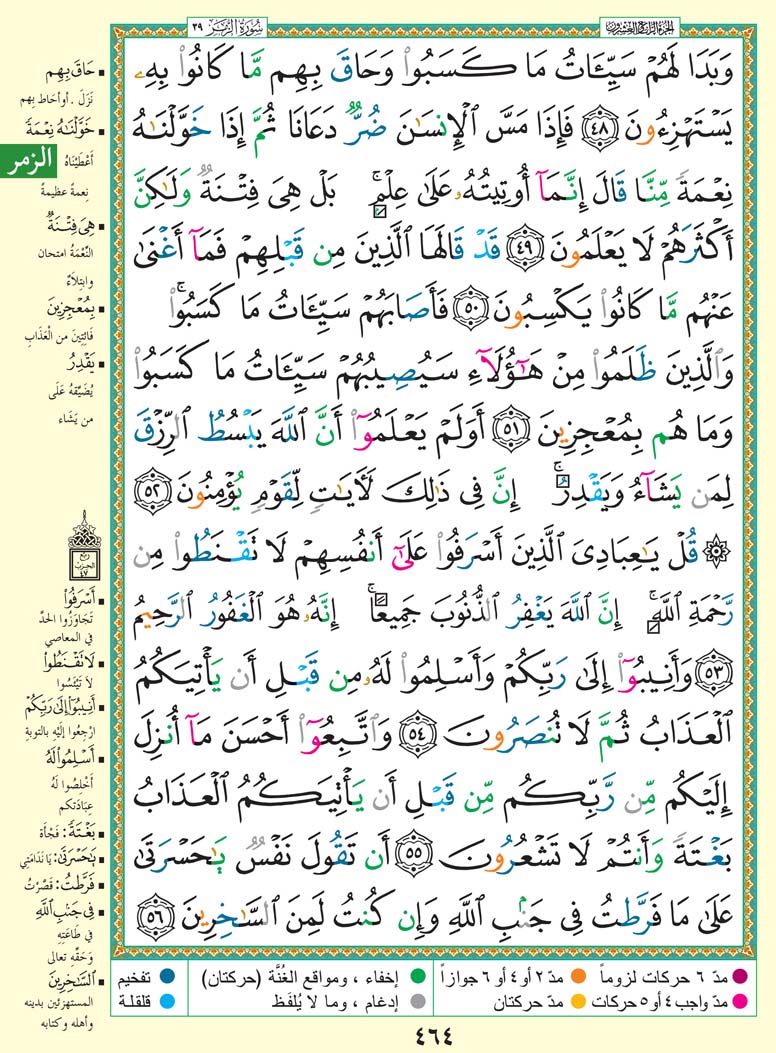 الجزء الرابع والعشرون
سُورَةُ الزُّمَرِ ٣٩
وَبَدَا لَهُمْ سَيِّـَٔاتُ مَا كَسَبُوا۟ وَحَاقَ بِهِم مَّا كَانُوا۟ بِهِۦ
يَسْتَهْزِءُونَ ٤٨ فَإِذَا مَسَّ ٱلْإِنسَـٰنَ ضُرٌّ دَعَانَا ثُمَّ إِذَا خَوَّلْنَـٰهُ
نِعْمَةً مِّنَّا قَالَ إِنَّمَآ أُوتِيتُهُۥ عَلَىٰ عِلْمٍۭ ۚ بَلْ هِىَ فِتْنَةٌ وَلَـٰكِنَّ
أَكْثَرَهُمْ لَا يَعْلَمُونَ ٤٩ قَدْ قَالَهَا ٱلَّذِينَ مِن قَبْلِهِمْ فَمَآ أَغْنَىٰ
عَنْهُم مَّا كَانُوا۟ يَكْسِبُونَ ٥٠ فَأَصَابَهُمْ سَيِّـَٔاتُ مَا كَسَبُوا۟ ۚ
وَٱلَّذِينَ ظَلَمُوا۟ مِنْ هَـٰٓؤُلَآءِ سَيُصِيبُهُمْ سَيِّـَٔاتُ مَا كَسَبُوا۟
وَمَا هُم بِمُعْجِزِينَ ٥١ أَوَلَمْ يَعْلَمُوٓا۟ أَنَّ ٱللَّهَ يَبْسُطُ ٱلرِّزْقَ
لِمَن يَشَآءُ وَيَقْدِرُ ۚ إِنَّ فِى ذَٰلِكَ لَـَٔايَـٰتٍ لِّقَوْمٍ يُؤْمِنُونَ ٥٢
۞ قُلْ يَـٰعِبَادِىَ ٱلَّذِينَ أَسْرَفُوا۟ عَلَىٰٓ أَنفُسِهِمْ لَا تَقْنَطُوا۟ مِن
رَّحْمَةِ ٱللَّهِ ۚ إِنَّ ٱللَّهَ يَغْفِرُ ٱلذُّنُوبَ جَمِيعًا ۚ إِنَّهُۥ هُوَ ٱلْغَفُورُ ٱلرَّحِيمُ
٥٣ وَأَنِيبُوٓا۟ إِلَىٰ رَبِّكُمْ وَأَسْلِمُوا۟ لَهُۥ مِن قَبْلِ أَن يَأْتِيَكُمُ
ٱلْعَذَابُ ثُمَّ لَا تُنصَرُونَ ٥٤ وَٱتَّبِعُوٓا۟ أَحْسَنَ مَآ أُنزِلَ
إِلَيْكُم مِّن رَّبِّكُم مِّن قَبْلِ أَن يَأْتِيَكُمُ ٱلْعَذَابُ
بَغْتَةً وَأَنتُمْ لَا تَشْعُرُونَ ٥٥ أَن تَقُولَ نَفْسٌ يَـٰحَسْرَتَىٰ
عَلَىٰ مَا فَرَّطتُ فِى جَنۢبِ ٱللَّهِ وَإِن كُنتُ لَمِنَ ٱلسَّـٰخِرِينَ ٥٦
حَاقَ بِهِم
نَزَلَ . أو أحَاط بهم
خَوَّلْنَـٰهُ نِعْمَةً
أعْطَيْنَاهُ
الزمر
نِعمةً عظيمةً
هِىَ فِتْنَةٌ
النِّعْمَةُ امتحان
وابتِلاءٌ
بِمُعْجِزِينَ
فَائِتِينَ من الْعَذَابِ
يَقْدِرُ
يُضَيِّقهُ عَلَى
من يَشَاء
ربع
الحزب
٤٧
أَسْرَفُوا۟
تجَاوَزُوا الحدَّ
في المعاصي
لَا تَقْنَطُوا۟
لا تَيْئَسُوا
أَنِيبُوٓا۟ إِلَىٰ رَبِّكُمْ
ارجِعُوا إلَيْه بالتوبةِ
أَسْلِمُوا۟ لَهُ
أخْلِصُوا لَهُ
عِبَادَتكم
بَغْتَةً : فَجْأة
يَـٰحَسْرَتَىٰ : يَا نَدَامَتِي
فَرَّطتُ : قَصَّرْتُ
فِى جَنۢبِ ٱللَّهِ
في طَاعَتِهِ
وَحَقِّه تعالى
ٱلسَّـٰخِرِينَ
المستهزئين بدينه
وأهله وكتابه
مدّ ٦ حركات لزوماً
مدّ ٢ أو ٤ أو ٦ جوازاً
إخفاء ، ومواقع الغُنَّة (حركتان)
تفخيم
مدّ واجب ٤ أو ٥ حركات
مدّ حركتان
إدغام ، وما لا يُلفَظ
قلقلة
٤٦٤